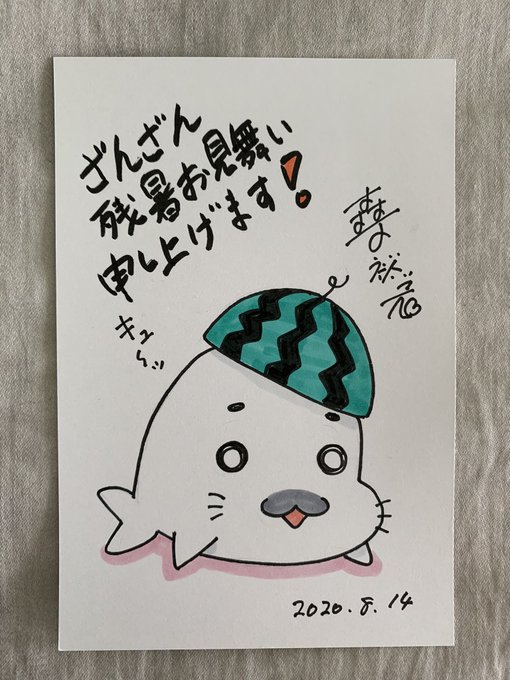 ざんざん
残暑お見舞い
申し上げます!
キュ
ゥッ
2020.8.14